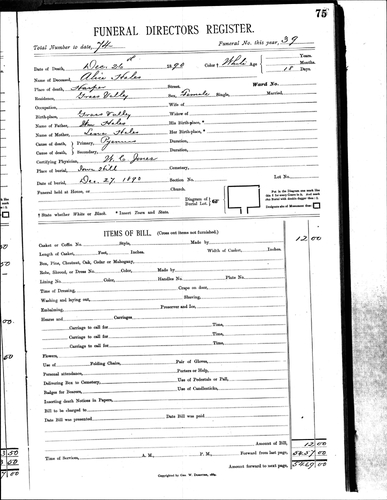 75
FUNERAL DIRECTORS REGISTER.
Total Number to date, 74 Funeral No. this year, 39
Date of Death, Dec. 26th 1890 Color † White Age Years.
Months.
18 Days
Name of Deceased, Alice Hales
Place of death, Street. Ward No.
Residence, Grass Valley Sex, Female Single, Married.
Occupation, Wife of
Birth-place, Grass Valley Widow of
Name of Father, Hales His Birth-place, *
Name of Mother, Hales Her Birth-place, *
Cause of death, Primary, Duration,
Cause of death, Secondary, Duration,
Certifying Physician, W. C. Jones
Place of burial, Iowa Hill Cemetery,
Date of burial, Dec. 27. 1890 Section No. Lot No.
Funeral held at Home, or Church.
Diagram of Burial Lot.
Put in the Diagram one mark the
† State whether White or Black. * Insert Town and State.
ITEMS OF BILL, (Cross out items not furnished.)
12.00
Casket or Coffin No. Style, Made by
Length of Casket, Feet, Inches. Width of Casket, Inches.
Box, Pine, Chestnut, Oak, Cedar or Mahogany,
Robe, Shroud, or Dress No. Color, Made by
Lining No. Color, Handles No. Plate No.
Time of Dressing, Crape on door,
Washing and laying out, Shaving,
Embalming, Preserver and Ice,
Hearse and Carriages
Carriage to call for Time,
Carriage to call for Time,
Carriage to call for Time,
Carriage to call for Time,
Flowers,
Use of Folding Chairs, Pair of Gloves,
Personal attendance, Porters or Help,
Delivering Box to Cemetery, Use of Pedestals or Pall,
Badges for Bearers, Use of Candlesticks,
Inserting death Notices in Papers,
Bill to be charged to
Date Bill was presented Date Bill was paid
Amount of Bill, 12.00
Time of Services, A. M., P. M., Forward from last page, 5457.00
Amount forward to next page, 5469.00